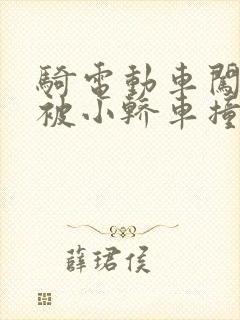 騎電動車闖
被小轎車撞
薛珺侯